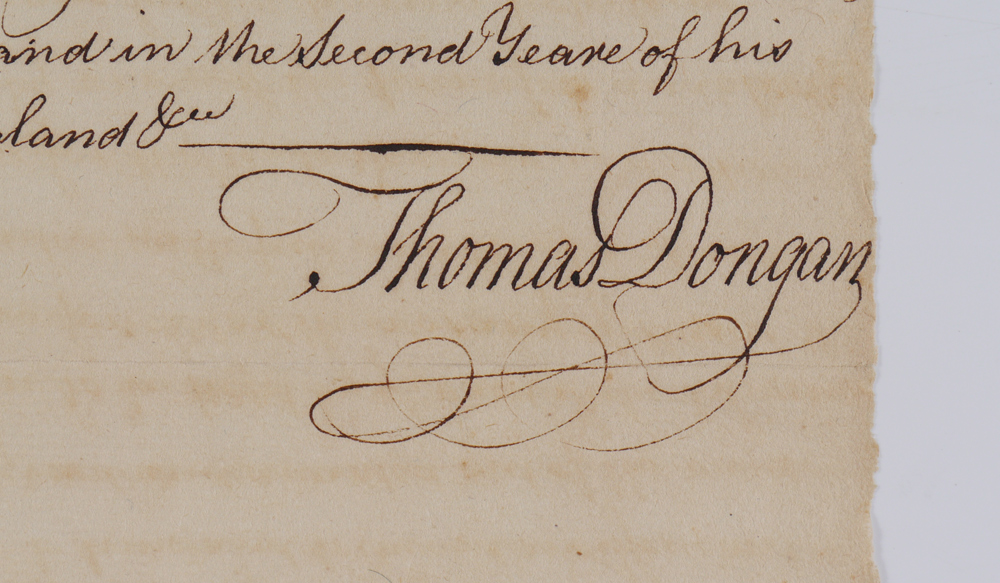 and in the Second Yeare of his
land &c
Thomas Dongan